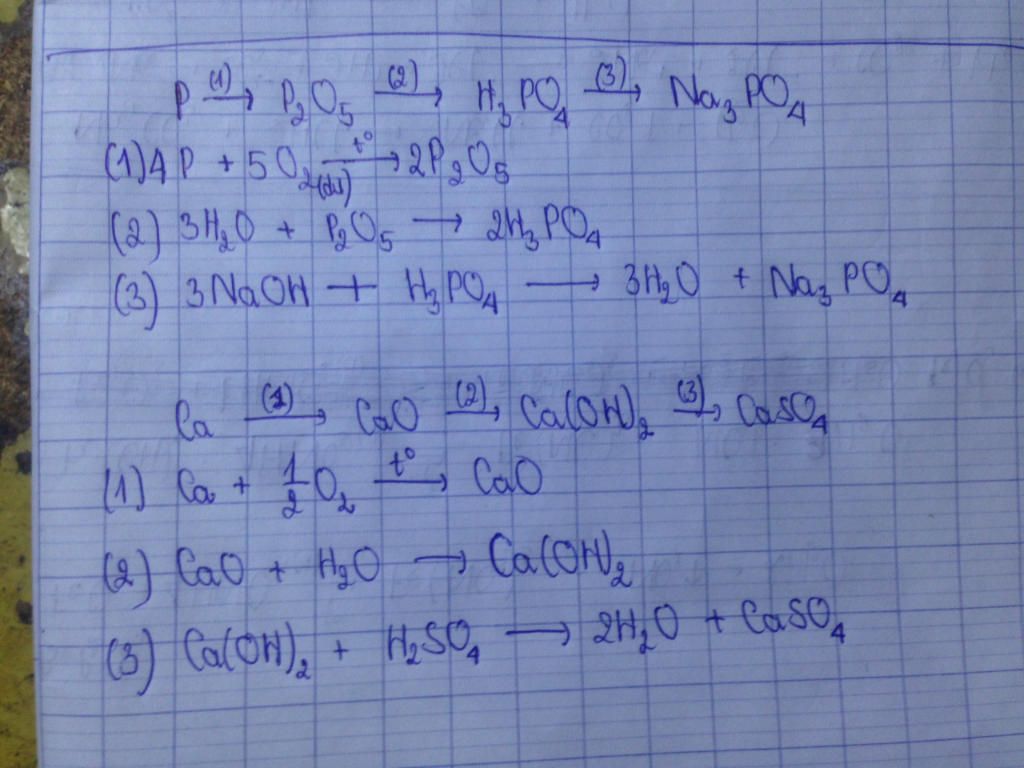 P (1)→ P₂O₅ (2)→ H₃PO₄ (3)→ Na₃PO₄
(1) 4P + 5O₂ (dư) t°→ 2P₂O₅
(2) 3H₂O + P₂O₅ → 2H₃PO₄
(3) 3NaOH + H₃PO₄ → 3H₂O + Na₃PO₄
Ca (1)→ CaO (2)→ Ca(OH)₂ (3)→ CaSO₄
(1) Ca + 1/2 O₂ t°→ CaO
(2) CaO + H₂O → Ca(OH)₂
(3) Ca(OH)₂ + H₂SO₄ → 2H₂O + CaSO₄